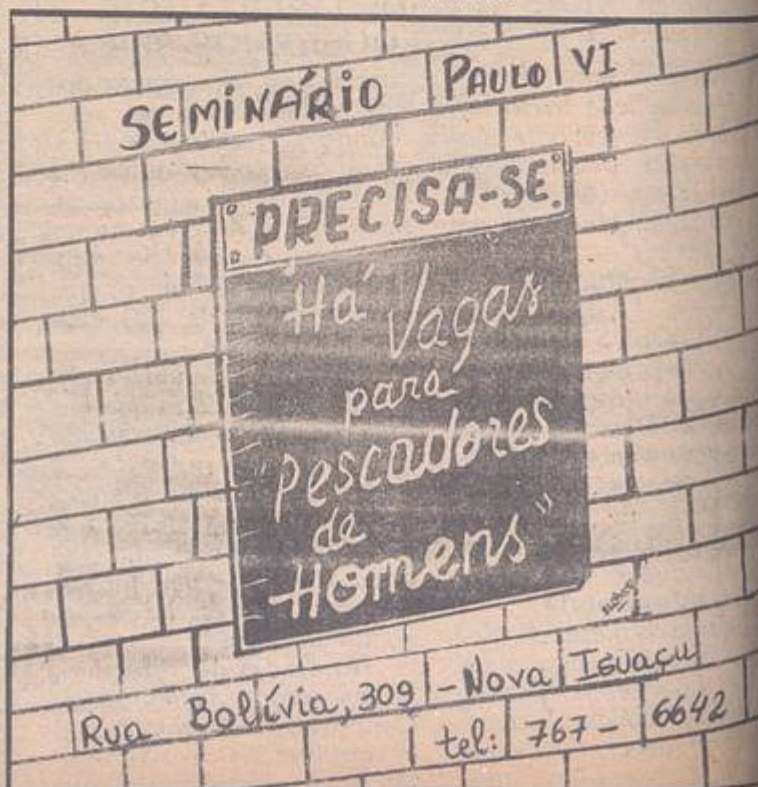 SEMINÁRIO PAULO VI
PRECISA-SE
Há Vagas
para
"Pescadores
de
Homens"
Rua Bolívia, 309 - Nova Iguaçu
tel: 767-6642